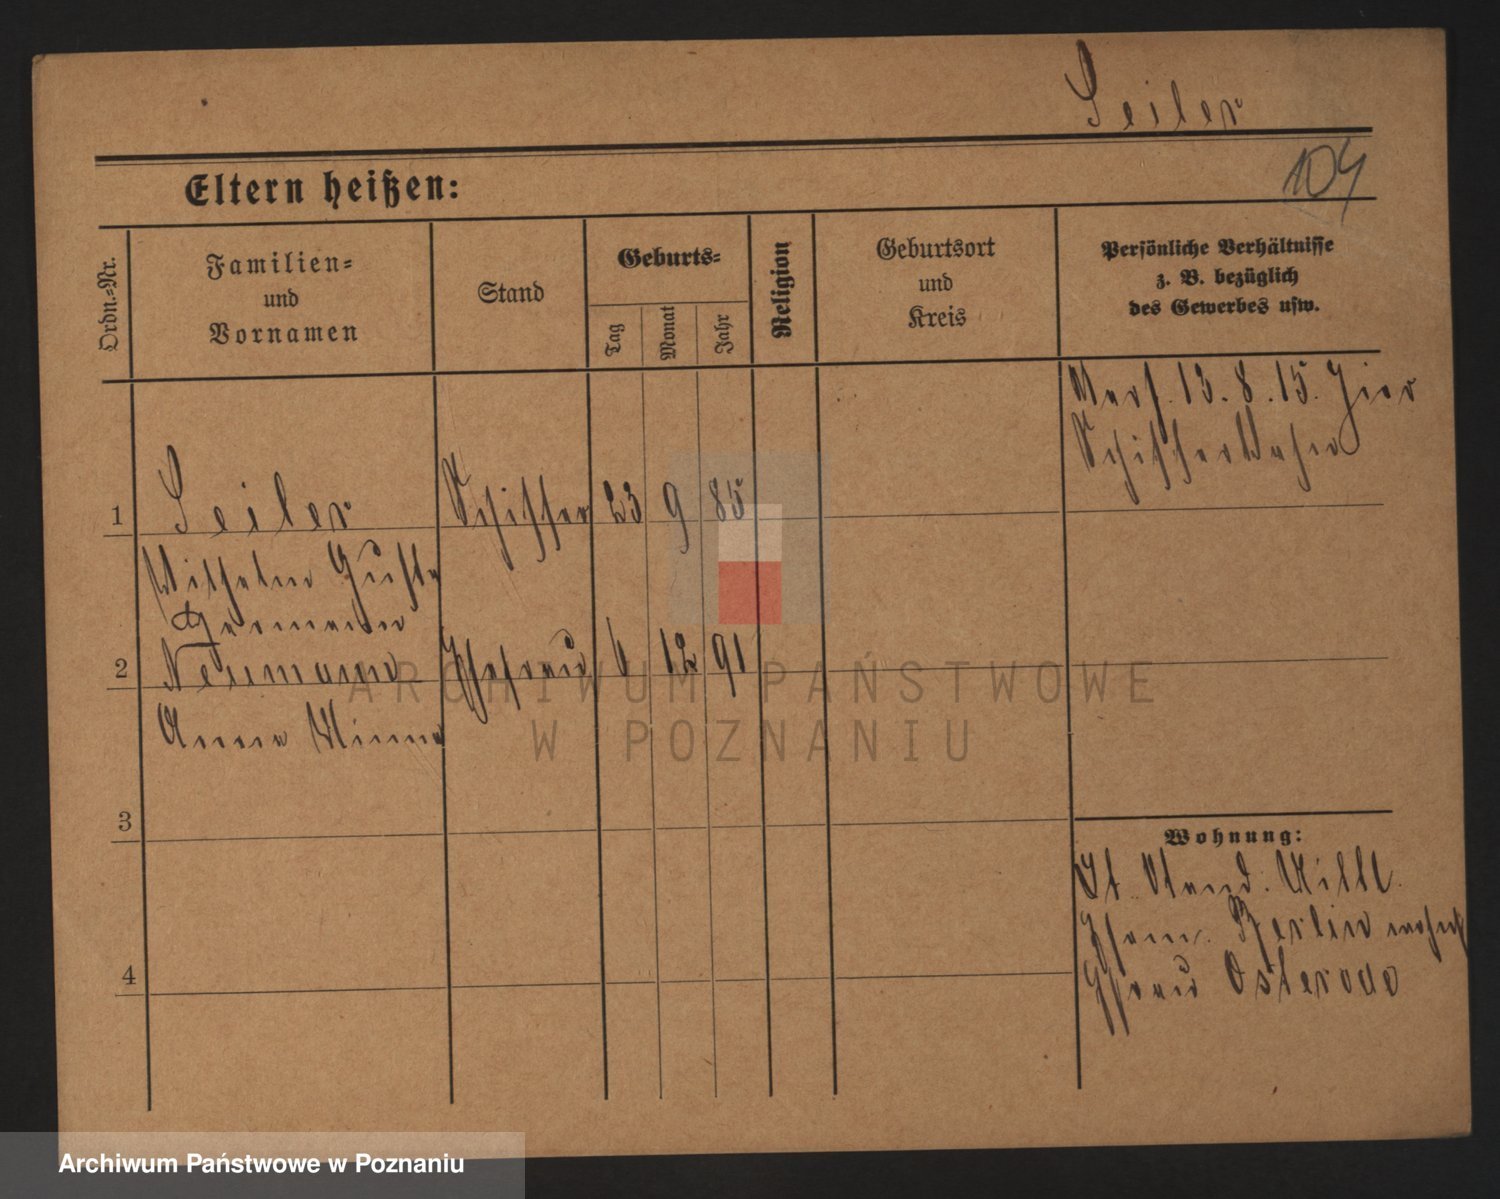 Seiler
104
Eltern heißen:
Ordn.=Nr.
Familien=
und
Vornamen
Stand
Geburts=
Tag
Monat
Jahr
Religion
Geburtsort
und
Kreis
Persönliche Verhältnisse
z. B. bezüglich
des Gewerbes usw.
13. 8. 15.
1 Seiler Schiffer 23 9 85
Wilhelm Gustav
Hermann
2 Neumann Ehefrau 6 12 91
Anna Minna
3
4
Wohnung:
Ehem. Berlin wohnt
Ehefrau Osterode
ARCHIWUM PAŃSTWOWE
W POZNANIU
Archiwum Państwowe w Poznaniu